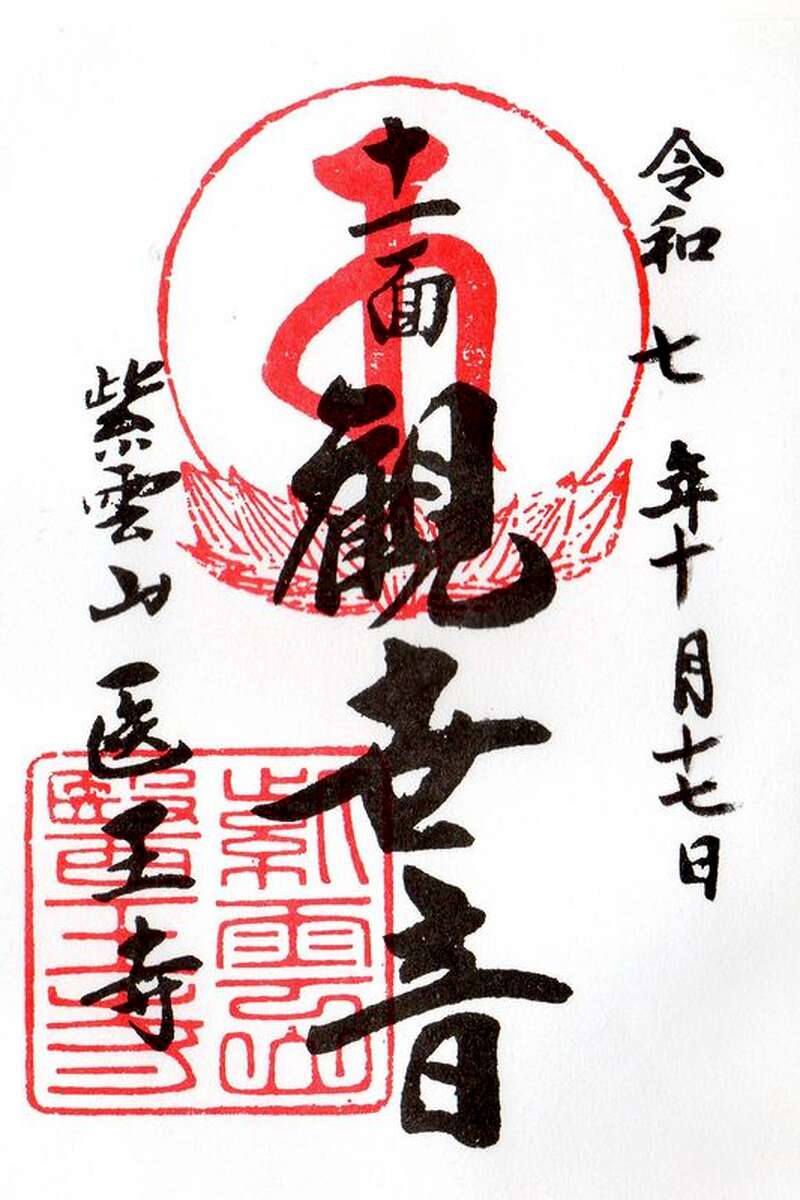 令和七年十月十七日
十一面観世音
紫雲山医王寺
紫雲山
醫王寺